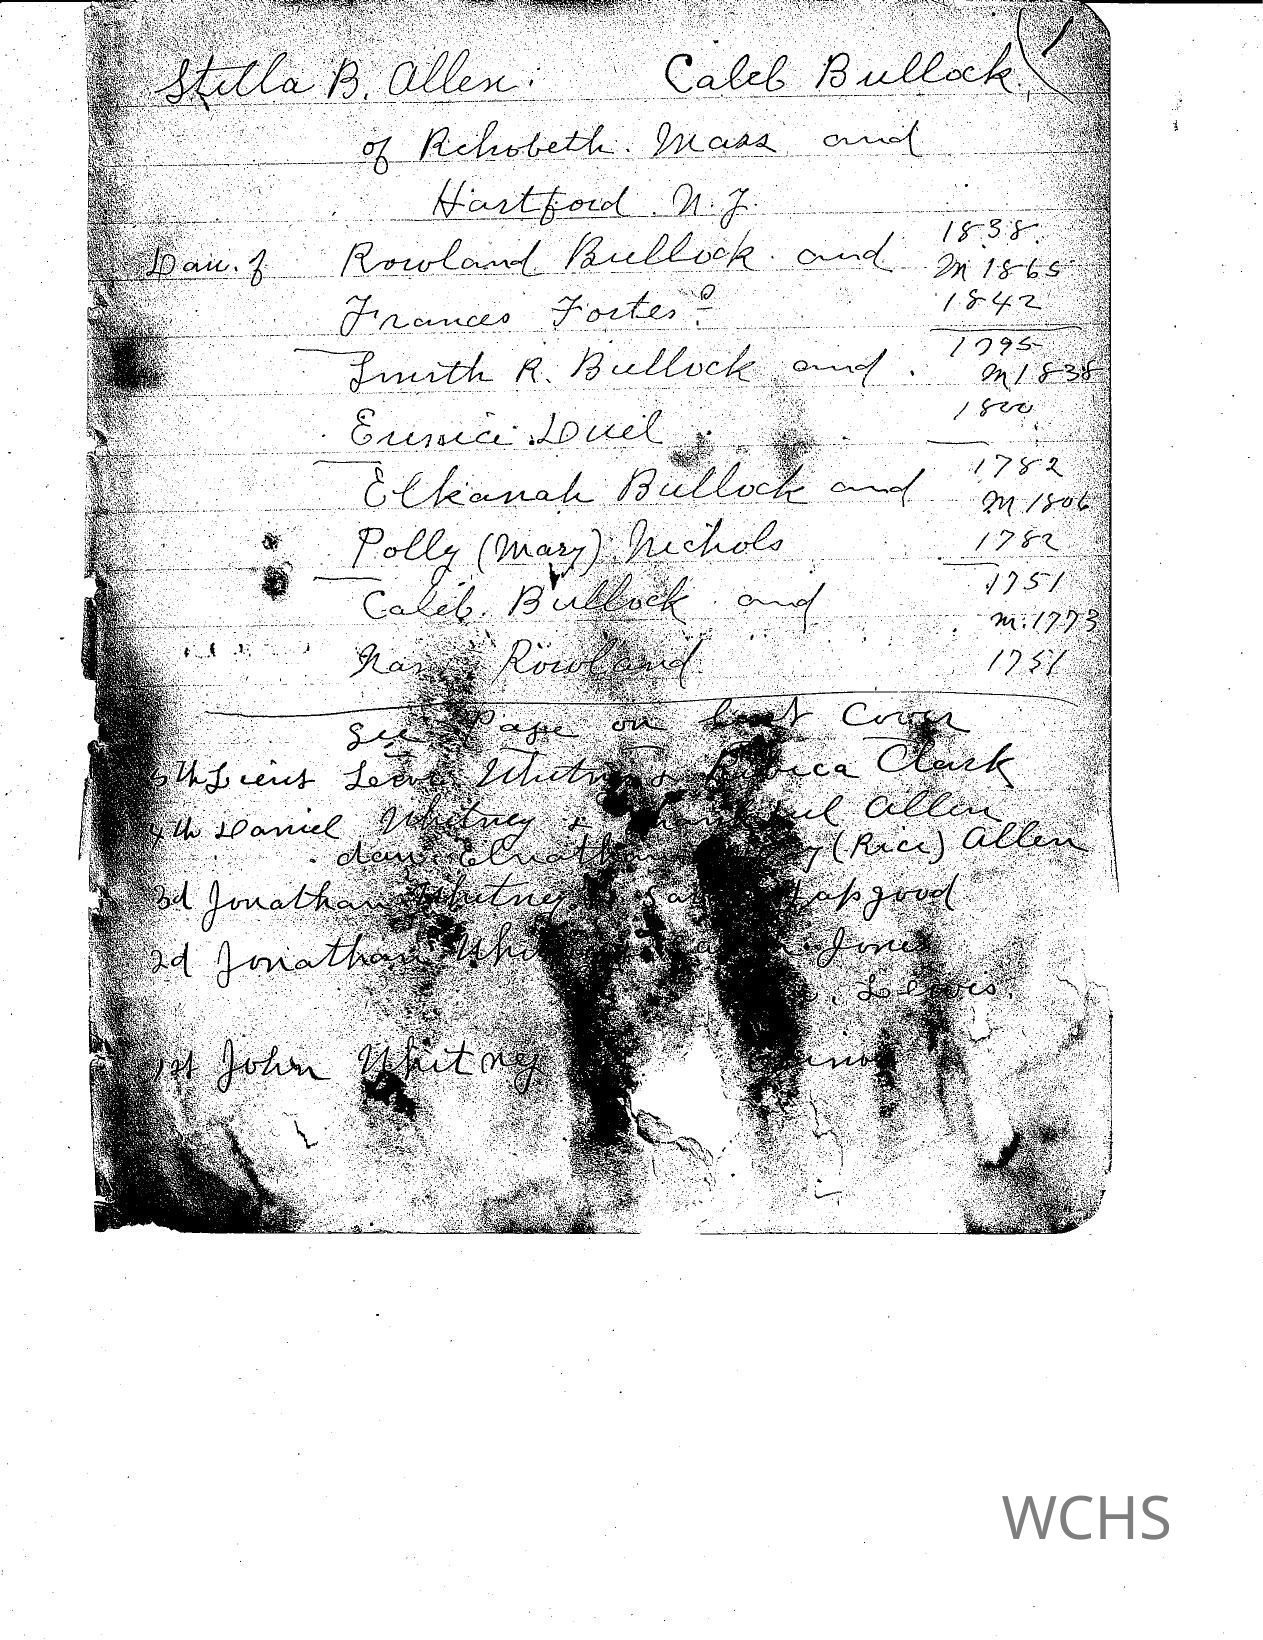 1
Stella B. Allen. Caleb Bullock.
of Rehobeth. Mass and
Hartford. N.Y.
1838.
Dau. of Rowland Bullock and m 1865
Frances Fortes? 1842
1795
Smith R. Bullock and m 1838
1800
Eunice Duel
1782
Elkanah Bullock and m 1806
Polly (Mary) Nichols 1782
1751
Caleb. Bullock and m. 1773
Rowland 1751
See Page on Cover
5th Lieut Whitney & Clark
4th Daniel Whitney & Allen
dau. Elnathan (Rice) Allen
3d Jonathan Whitney Hapgood
2d Jonathan Jones
Lewis.
1st John Whitney
WCHS